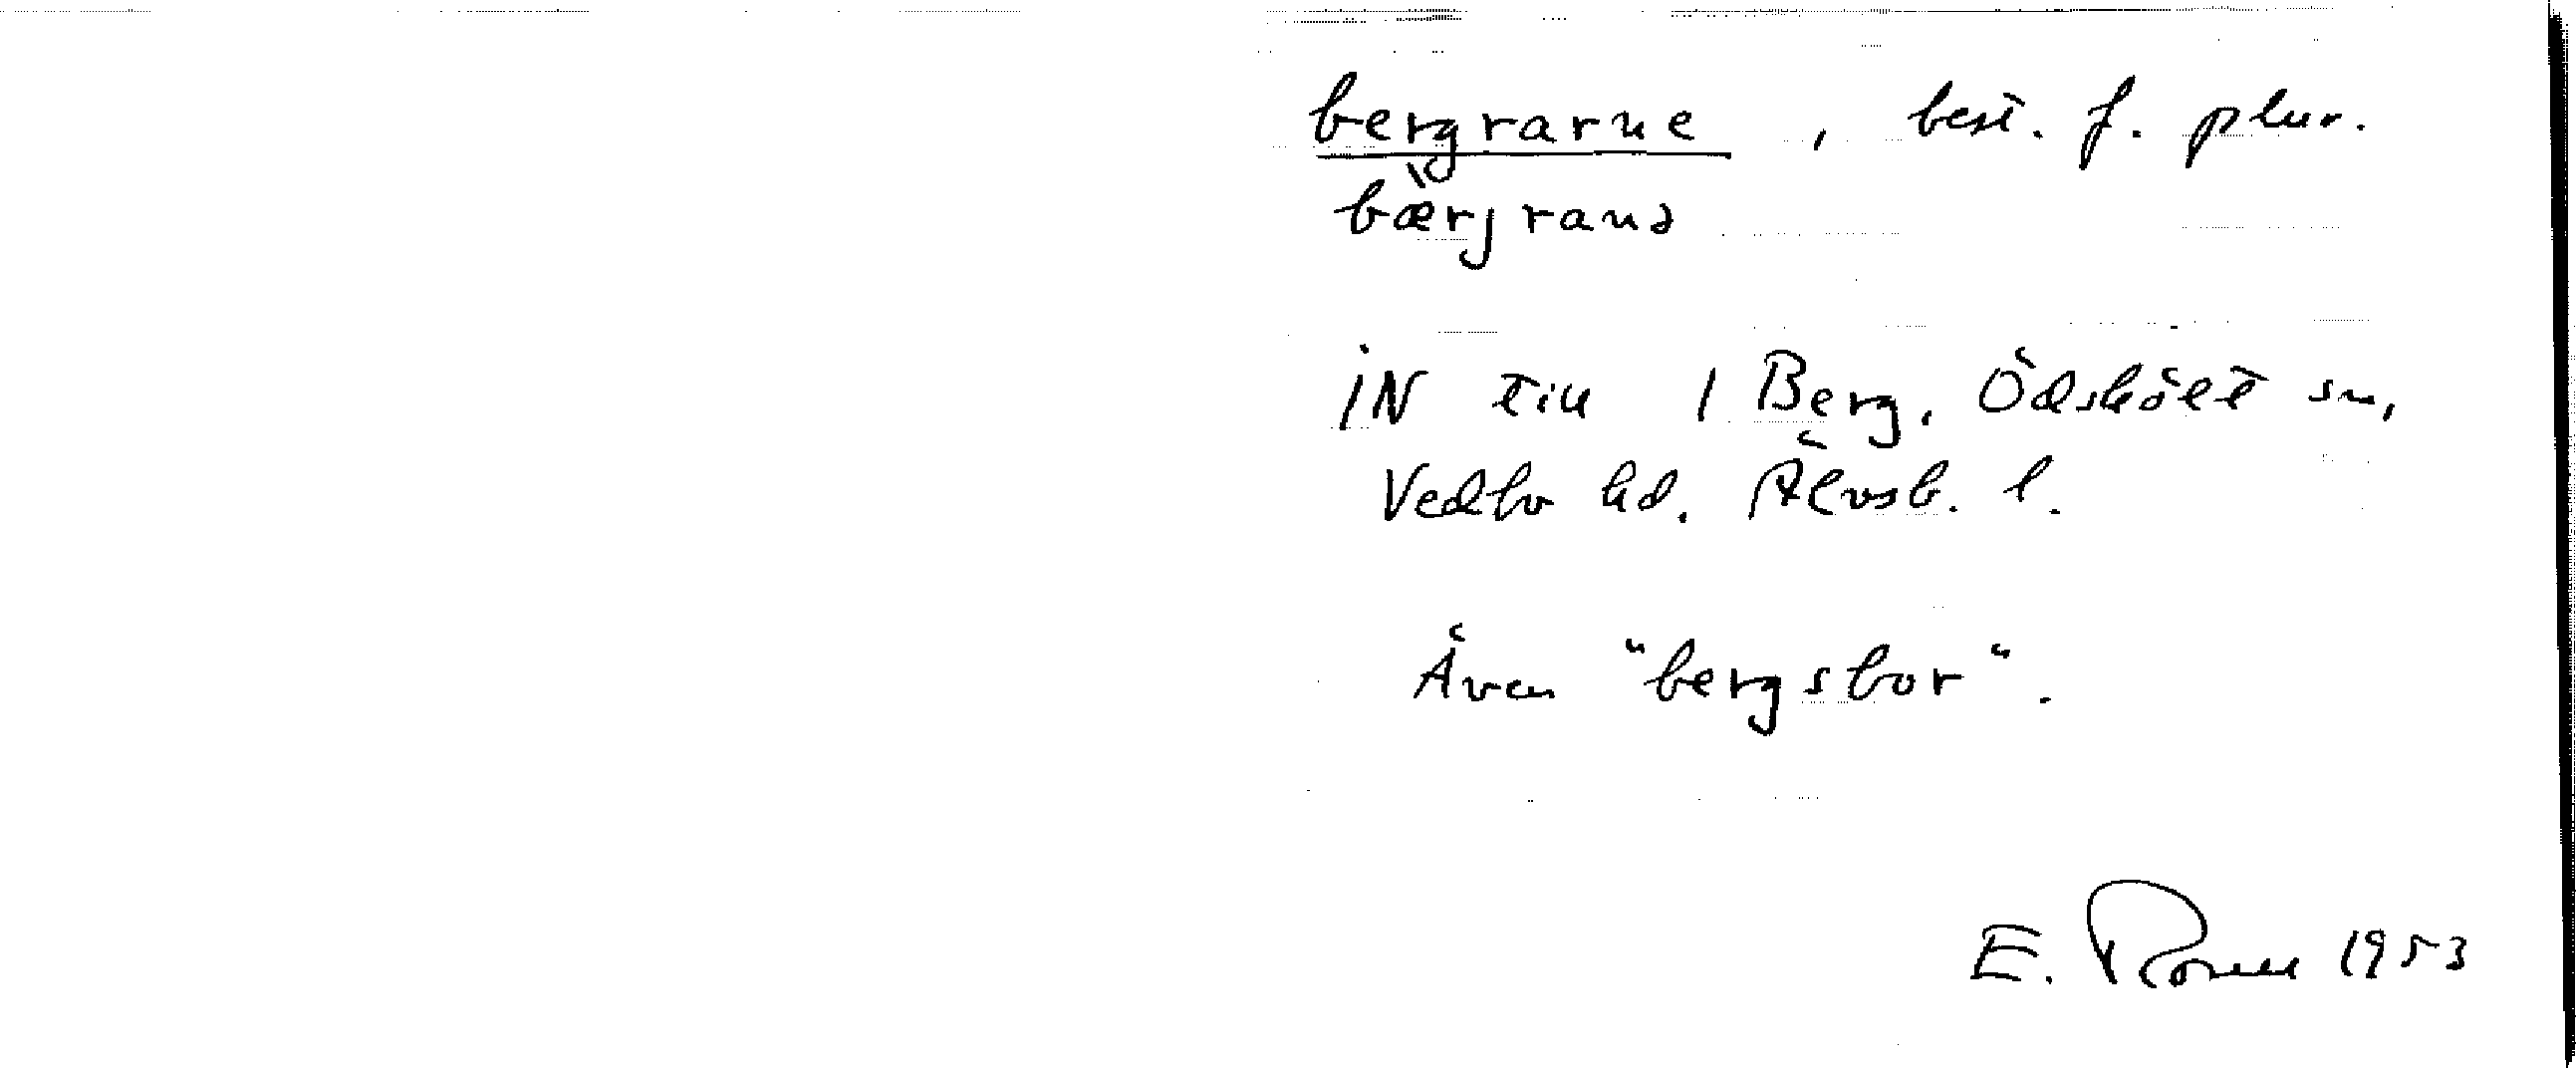 bergrarne, best. f. plur.
bærjranə
iN till 1 Berg, Ödskölt sn,
Vedbo hd. Älvsb. l.
Även "bergsbor".
E. Rosell 1953